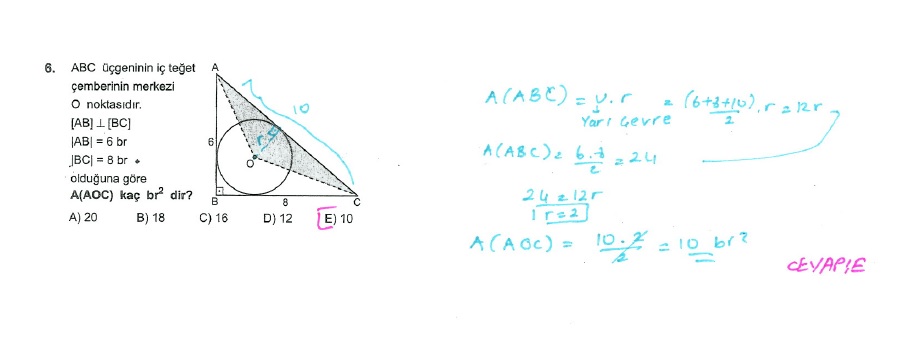 6. ABC üçgeninin iç teğet
çemberinin merkezi
O noktasıdır.
[AB] ⊥ [BC]
|AB| = 6 br
|BC| = 8 br
olduğuna göre
A(AOC) kaç br² dir?
A) 20 B) 18 C) 16 D) 12 E) 10
A
10
6
r
O
B
8
C
A(ABC) = u.r = (6+8+10)/2 . r = 12r
Yarı Çevre
A(ABC) = 6.8/2 = 24
24 = 12r
r = 2
A(AOC) = 10.2/2 = 10 br²
CEVAP E